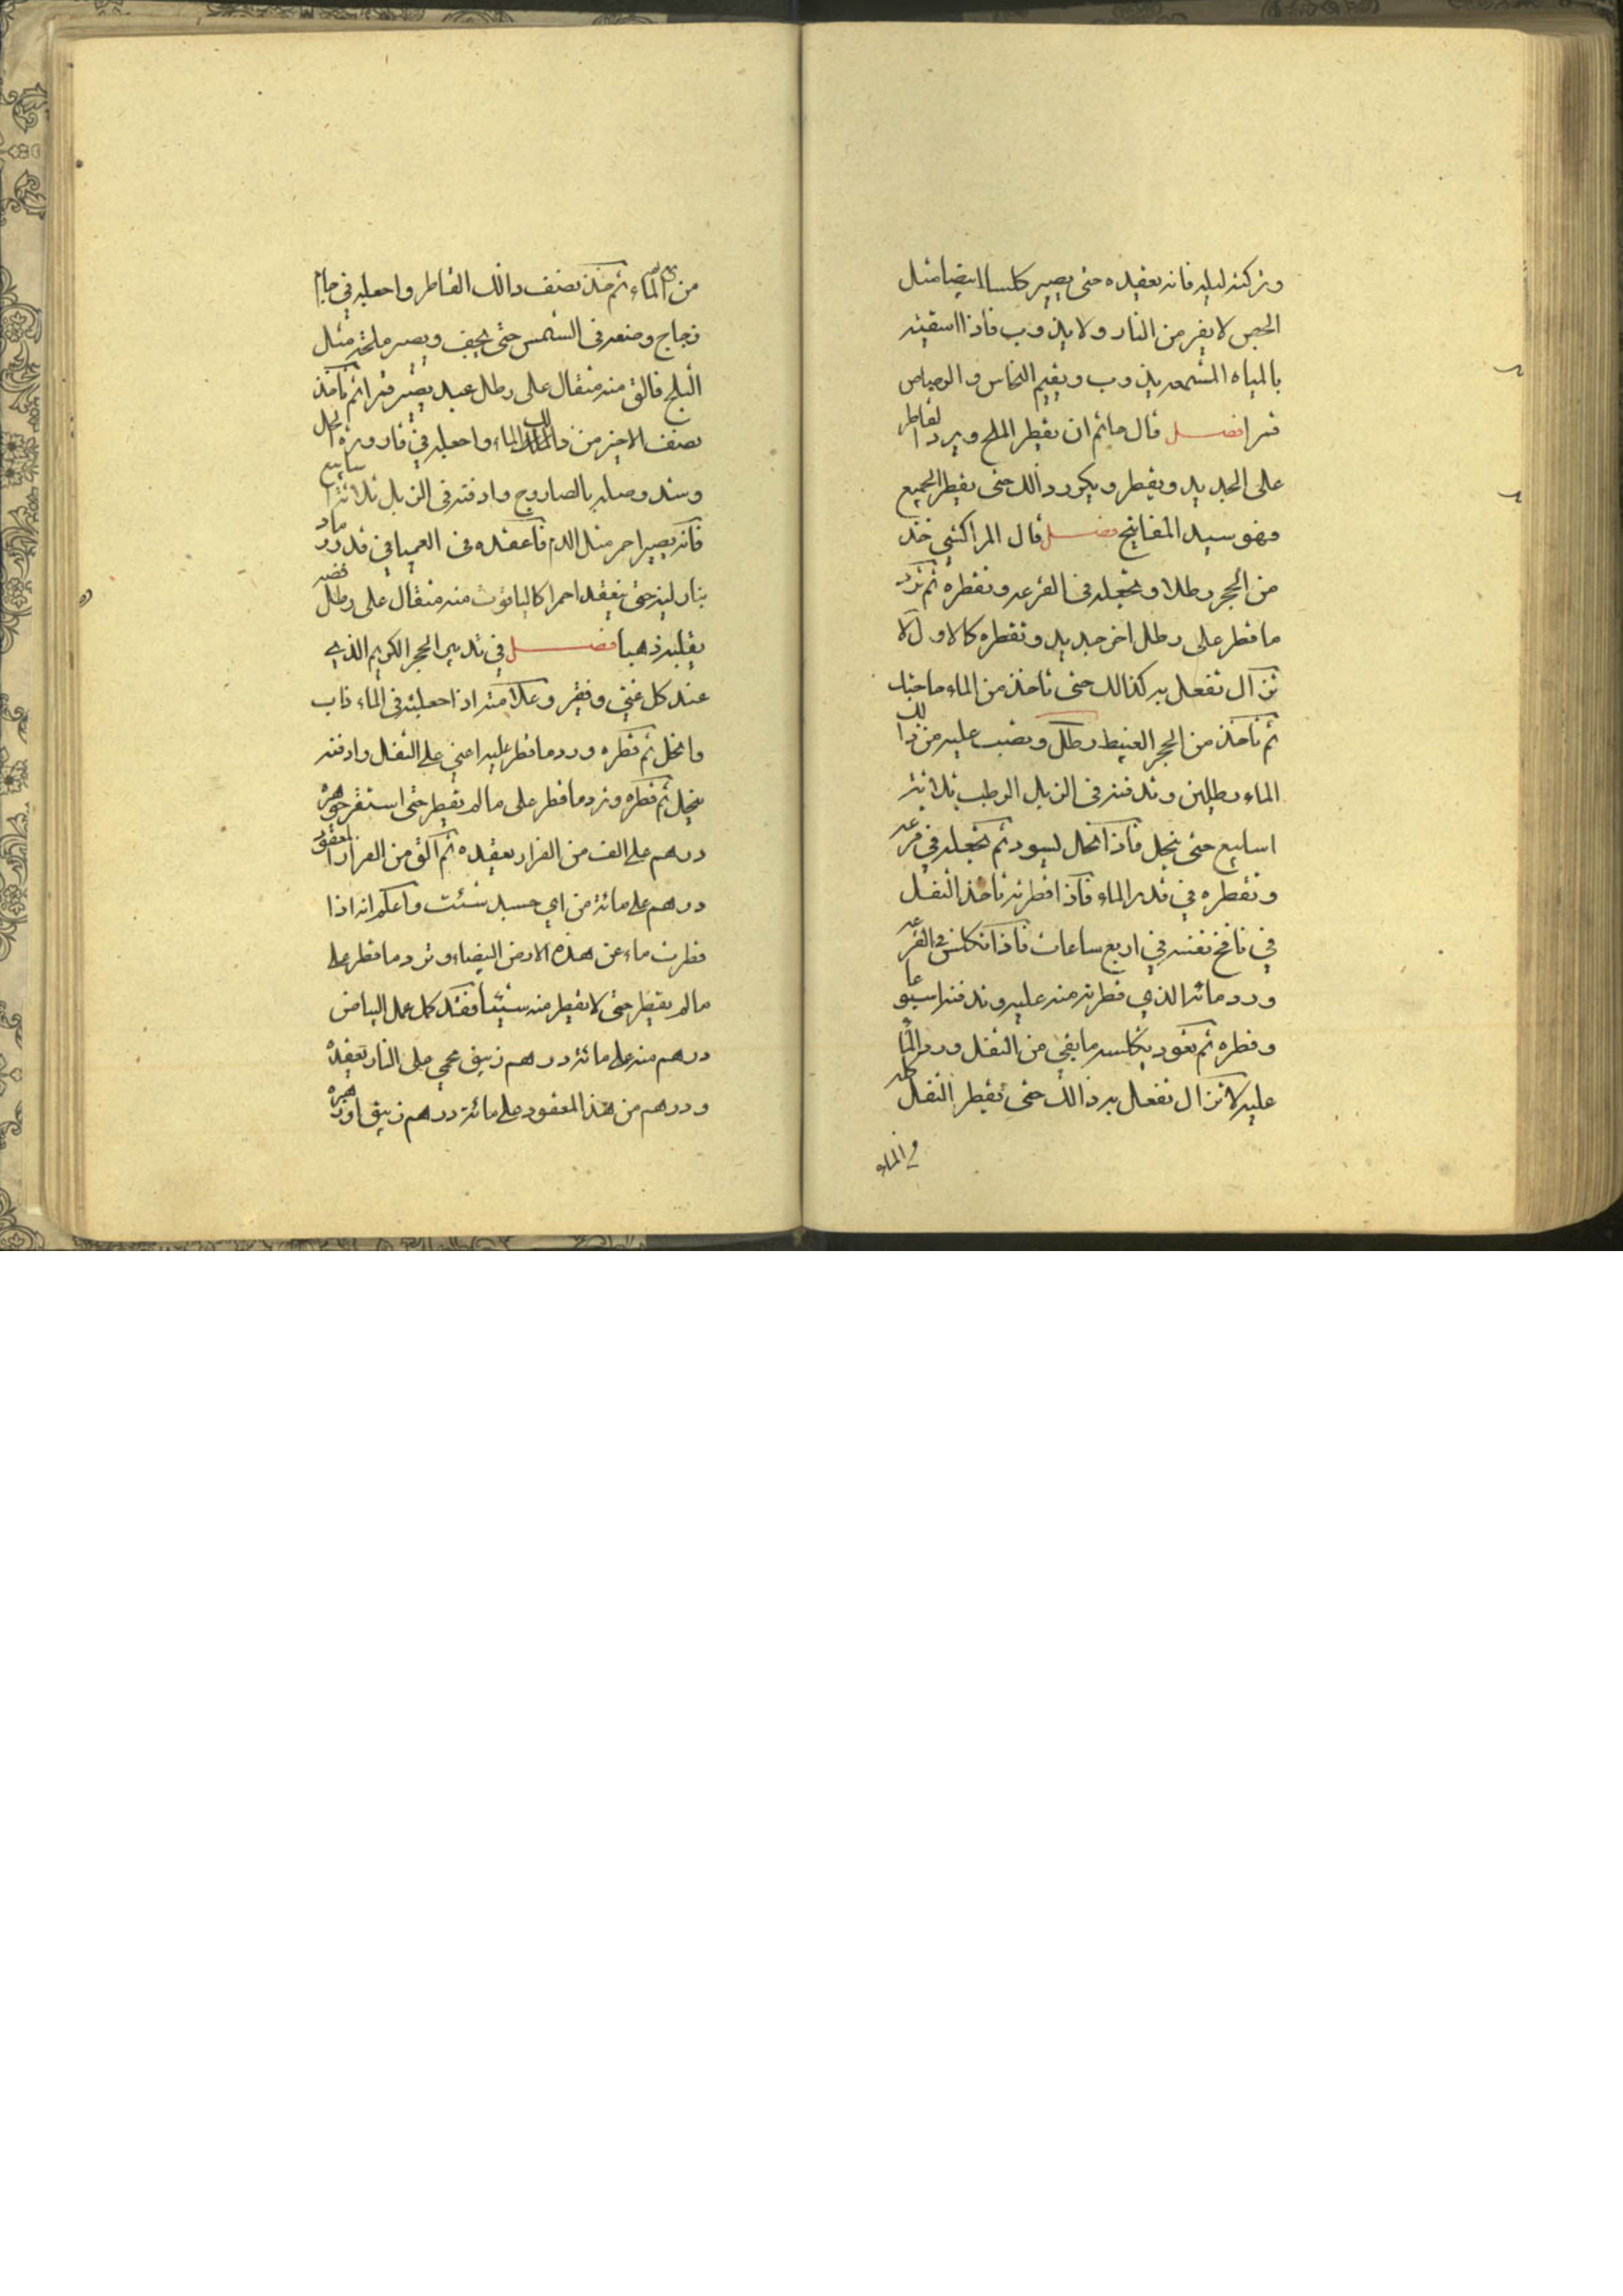 وتركته ليله فانه يعقده حتى يصير كلسا ابيضا مثل
الجص لا يفر من النار ولا يذوب فاذا اسقيته
بالمياه المشمعه يذوب ويقيم النحاس والرصاص
قمرا فصل قال حاتم ان يقطر الملح ويرد القاطر
على الجديد ويقطر ويكرر ذالك حتى يقطر الجميع
فهو سيد المفاتيح فصل قال المراكشي خذ
من الحجر رطلا وتجعله في القرعه وتقطره ثم ترد
ما قطر على رطل اخر جديد وتقطره كالاول لا
تزال تفعل به كذالك حتى تاخذ من الماء حاجتك
ثم تاخذ من الحجر الغبيط رطل وتصب عليه من ذالك
الماء رطلين وتدفنه في الزبل الرطب ثلاثة
اسابيع حتى ينحل فاذا انحل يسود ثم تجعله في قرعه
وتقطره في قدر الماء فاذا قطرته تاخذ الثفل
في نافخ نفسه في اربع ساعات فاذا تكلس في القرعه
ورد مائه الذي قطرته منه عليه وتدفنه اسبوعا
وقطره ثم تعود بتكلسه ما بقي من الثفل ورد الماء
عليه لا تزال تفعل به ذالك حتى تقطر الثفل كله
في الماء
من الماء ثم خذ نصف ذالك القاطر واجعله في جام
زجاج وضعه في الشمس حتى يجف ويصير ملحه مثل
الثلج فالق منه مثقال على رطل عبد يصير قمرا ثم تاخذ
نصف الاخير من ذالك الماء واجعله في قارورة
وسد وصله بالصاروج وادفنه في الزبل ثلاثة اسابيع
فانه يصير احمر مثل الدم فاعقده في العميا في قدر رماد
بنار لينه حتى ينعقد احمرا كالياقوت منه مثقال على رطل فضه
يقلبه ذهبا فصل في تدبير الحجر الكريم الذي
عند كل غني وفقير وعلامته اذا جعلته في الماء ذاب
وانحل ثم قطره ورد ما قطر عليه اعني على الثفل وادفنه
ينحل ثم قطره وترد ما قطر على ما لم يقطر حتى استقر جوهره
درهم على الف من الفرار يعقده ثم الق من الفرار المعقود
درهم على مائة من اي جسد شئت واعلم انه اذا
قطرت ماء عن هذه الارض البيضاء وترد ما قطر على
ما لم يقطر حتى لا يقطر منه شيئا فقد كمل عمل البياض
درهم منه على مائة درهم زيبق محمي على النار تعقده
ودرهم من هذا المعقود على مائة درهم زيبق او زهره